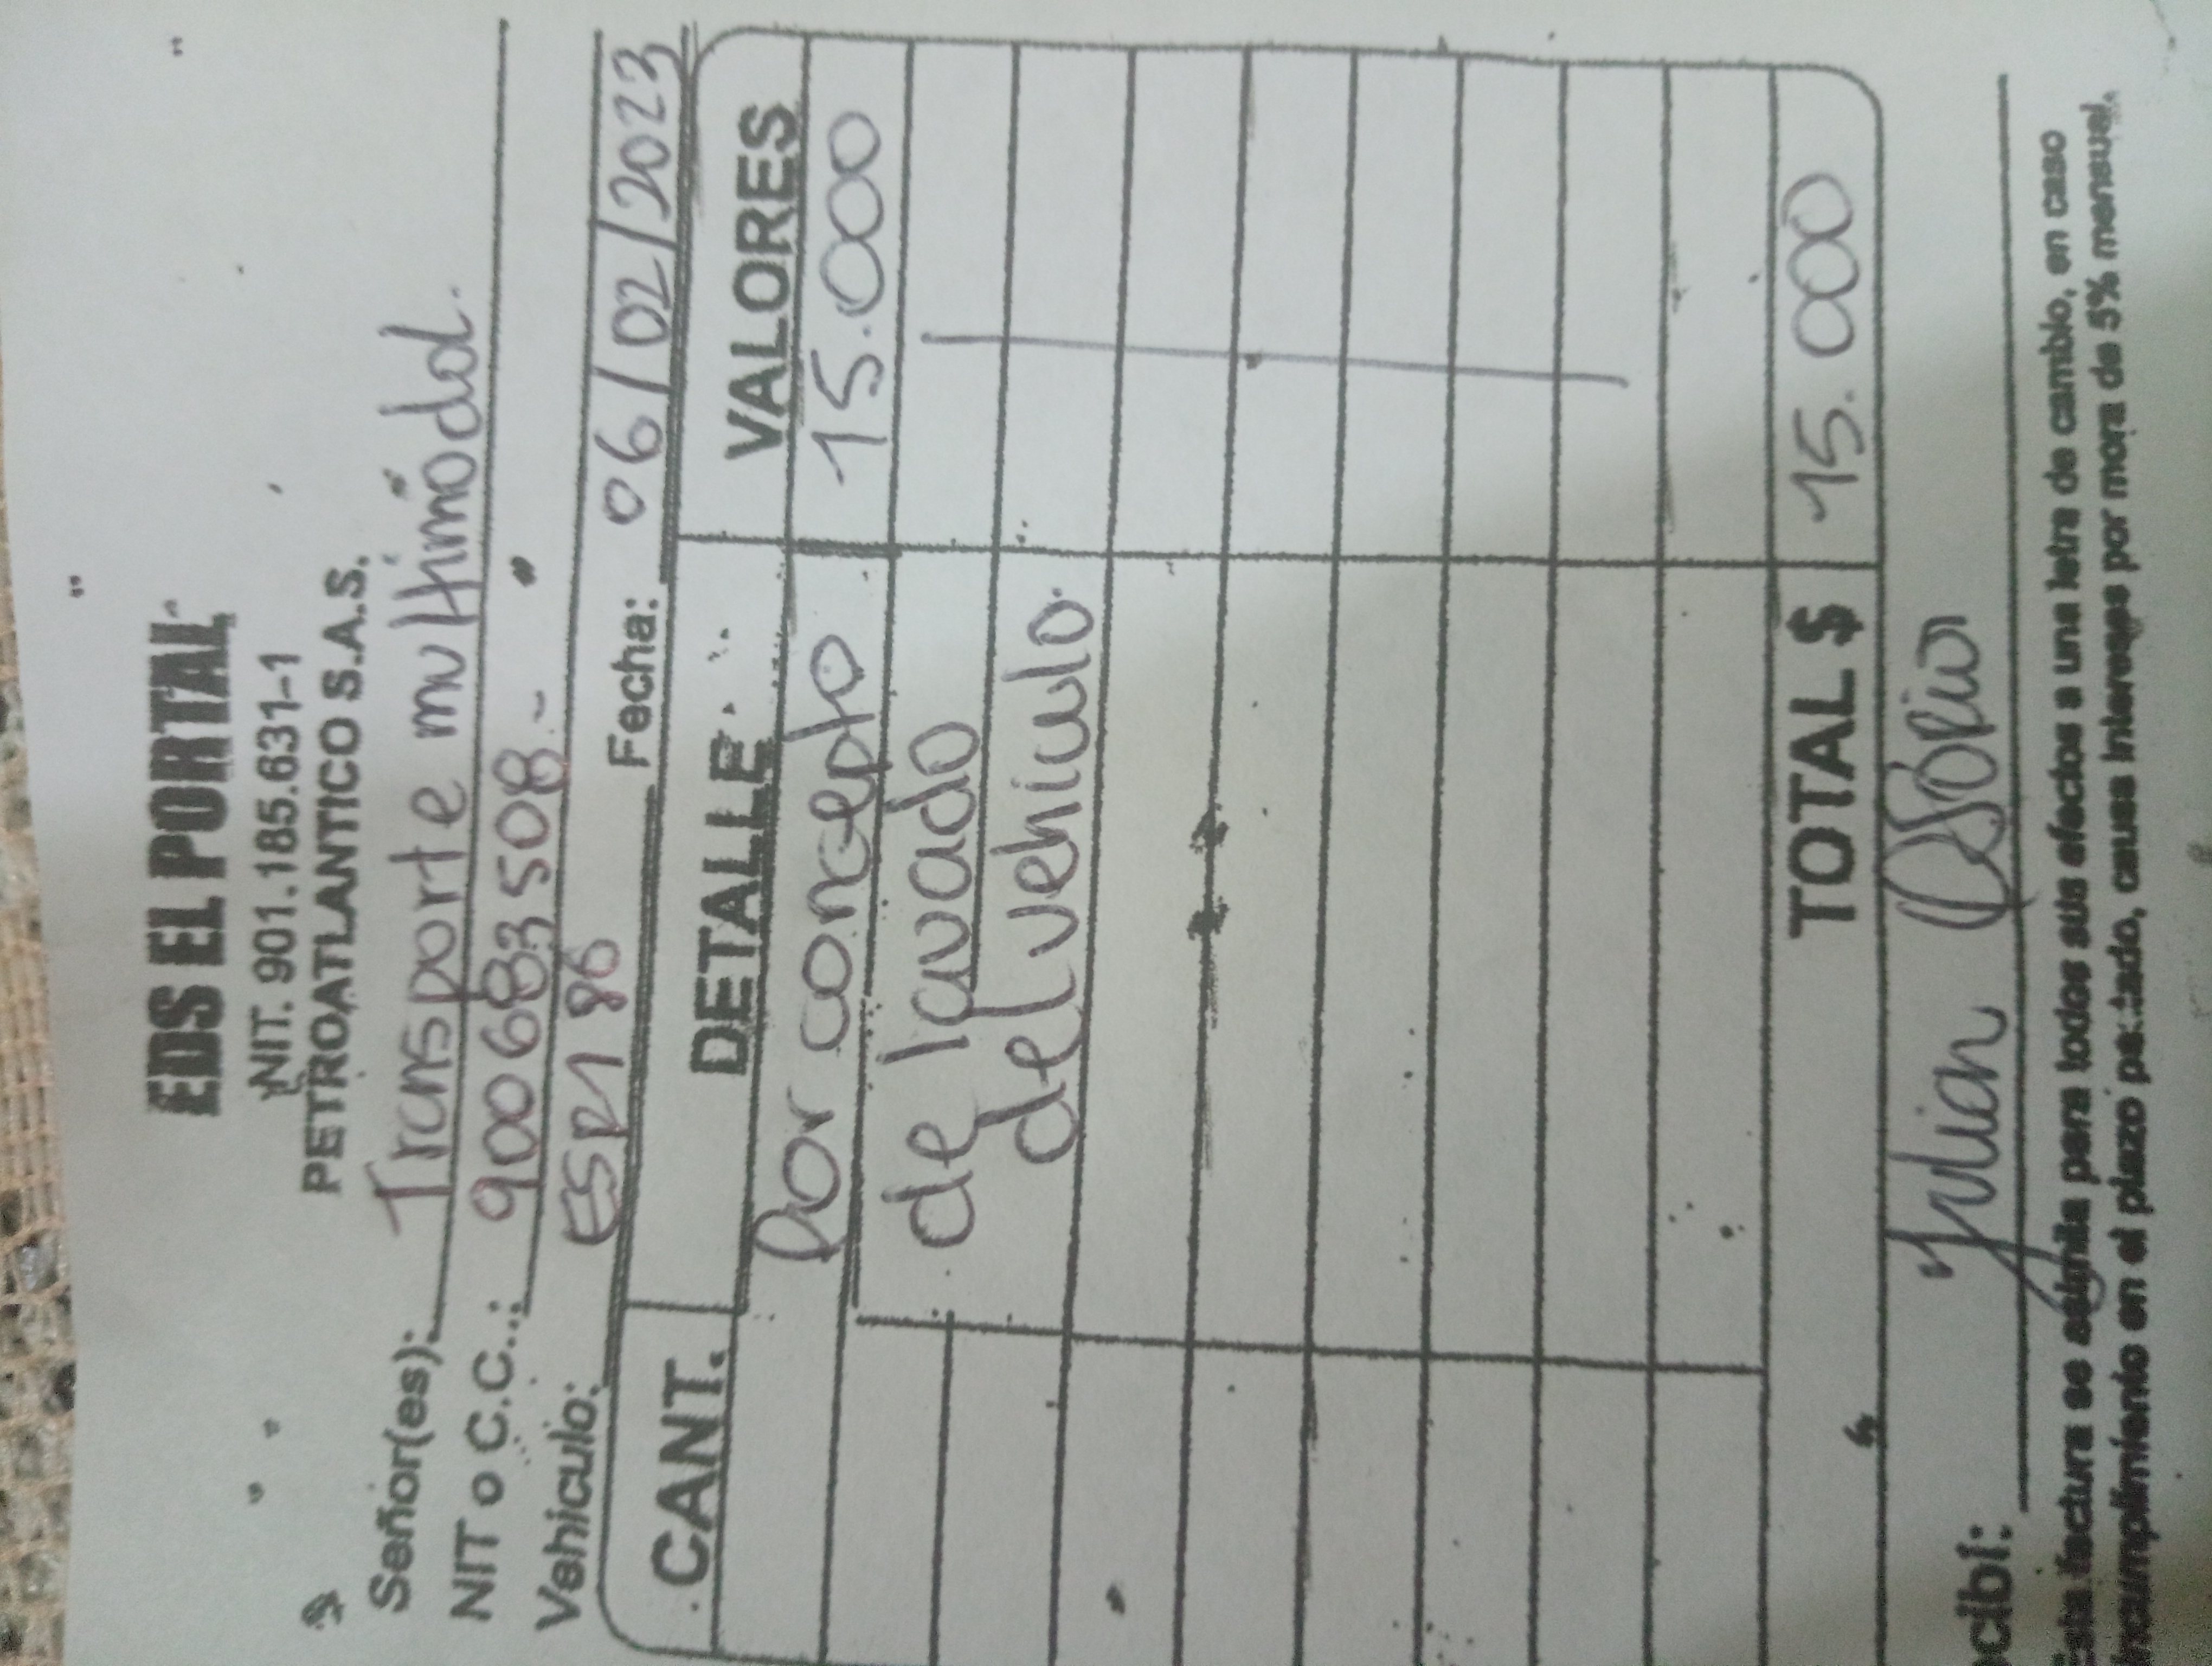 EDS EL PORTAL
NIT. 901.185.631-1
PETROATLANTICO S.A.S.
Señor(es): Transporte multimodal.
NIT o C.C.: 900683508.-
Vehiculo: ESR186 Fecha: 06/02/2023
CANT. DETALLE VALORES
Por concepto 15.000
de lavado
del vehiculo.
TOTAL $ 15.000
cibí: Julian Osorio
Esta factura se asimila para todos sus efectos a una letra de cambio, en caso
incumplimiento en el plazo pactado, causa intereses por mora de 5% mensual.